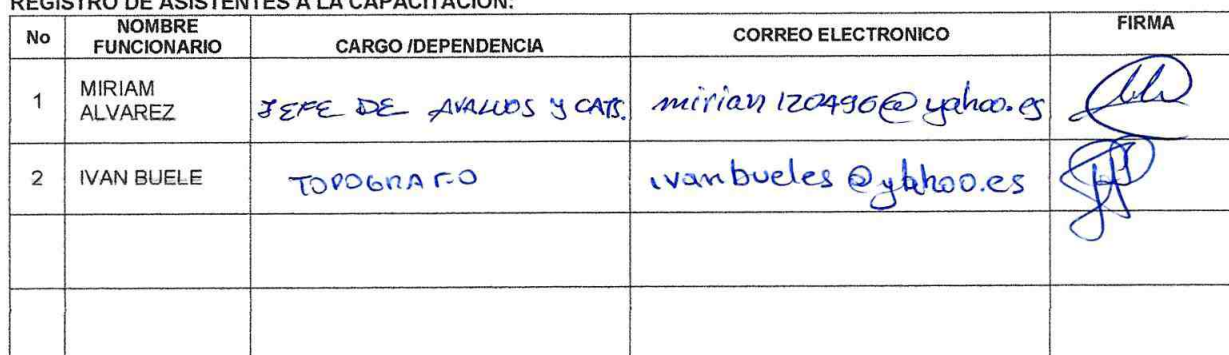 REGISTRO DE ASISTENTES A LA CAPACITACIÓN:
No NOMBRE FUNCIONARIO CARGO /DEPENDENCIA CORREO ELECTRONICO FIRMA
1 MIRIAM ALVAREZ JEFE DE AVALUOS Y CATS. mirian120496@yahoo.es
2 IVAN BUELE TOPOGRAFO ivanbueles@yahoo.es